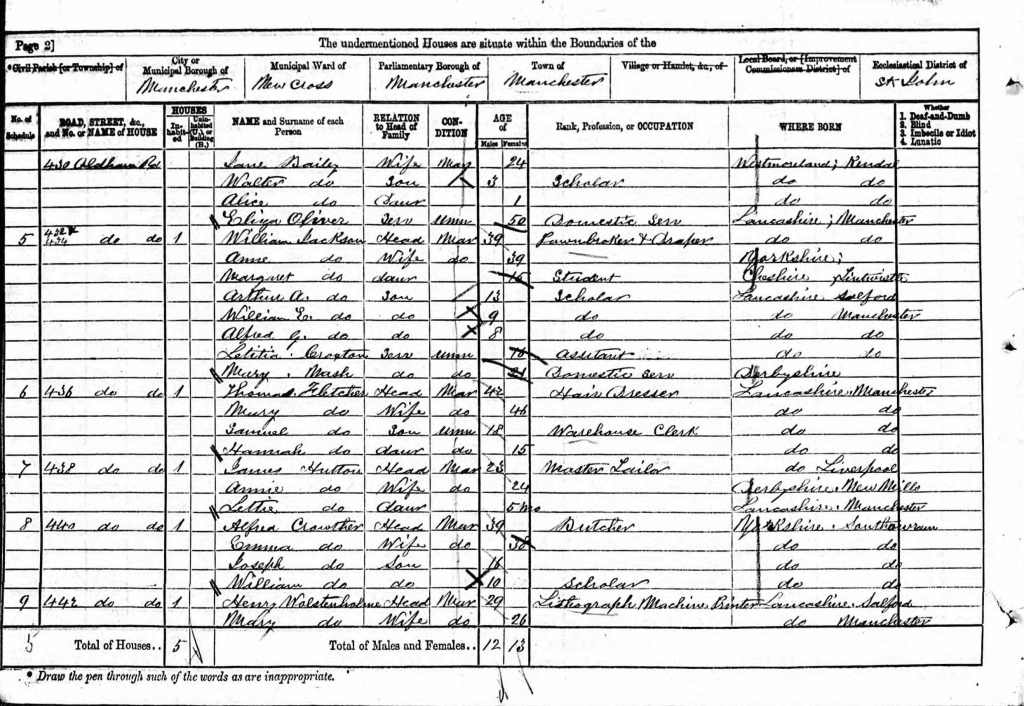 Page 2] The undermentioned Houses are situate within the Boundaries of the
*Civil Parish [or Township] of City or Municipal Borough of Municipal Ward of Parliamentary Borough of Town of Village or Hamlet, &c., of Local Board, or [Improvement Commissioners District] of Ecclesiastical District of
Manchester New Cross Manchester Manchester St John
No. of Schedule ROAD, STREET, &c., and No. or NAME of HOUSE HOUSES Inhabited Uninhabited (U.), or Building (B.) NAME and Surname of each Person RELATION to Head of Family CONDITION AGE of Males Females Rank, Profession, or OCCUPATION WHERE BORN Whether 1. Deaf-and-Dumb 2. Blind 3. Imbecile or Idiot 4. Lunatic
430 Oldham Rd Jane Bailey Wife Mar 24 Westmoreland; Kendal
Walter do Son 3 Scholar do do
Alice do Daur 1 do do
Eliza Oliver Serv Unm 50 Domestic Serv Lancashire; Manchester
5 432 & 434 do do 1 William Jackson Head Mar 39 Pawnbroker & Draper do do
Anne do Wife do 39 Yorkshire;
Margaret do daur 16 Student Cheshire
Arthur A. do Son 13 Scholar Lancashire. Salford
William E. do do 9 do do Manchester
Alfred G. do do 8 do do do
Letitia Croxton Serv Unm 18 Assitant do do
Mary Nash do do 21 Domestic Serv Derbyshire
6 436 do do 1 Thomas Fletcher Head Mar 42 Hair Dresser Lancashire. Manchester
Mary do Wife do 46 do do
Samuel do Son Unm 18 Warehouse Clerk do do
Hannah do daur do 15 do do
7 438 do do 1 James Hutton Head Mar 23 Master Tailor do Liverpool
Annie do Wife do 24 Derbyshire. New Mills
Lettie do daur 5 mo Lancashire. Manchester
8 440 do do 1 Alfred Crowther Head Mar 39 Butcher Yorkshire. Southowram
Emma do Wife do 38 do do
Joseph do Son 16 do do
William do do 10 Scholar do do
9 442 do do 1 Henry Wolstenholme Head Mar 29 Lithograph Machine Printer Lancashire. Salford
Mary do Wife do 26 do Manchester
5 Total of Houses.. 5 Total of Males and Females.. 12 13
* Draw the pen through such of the words as are inappropriate.